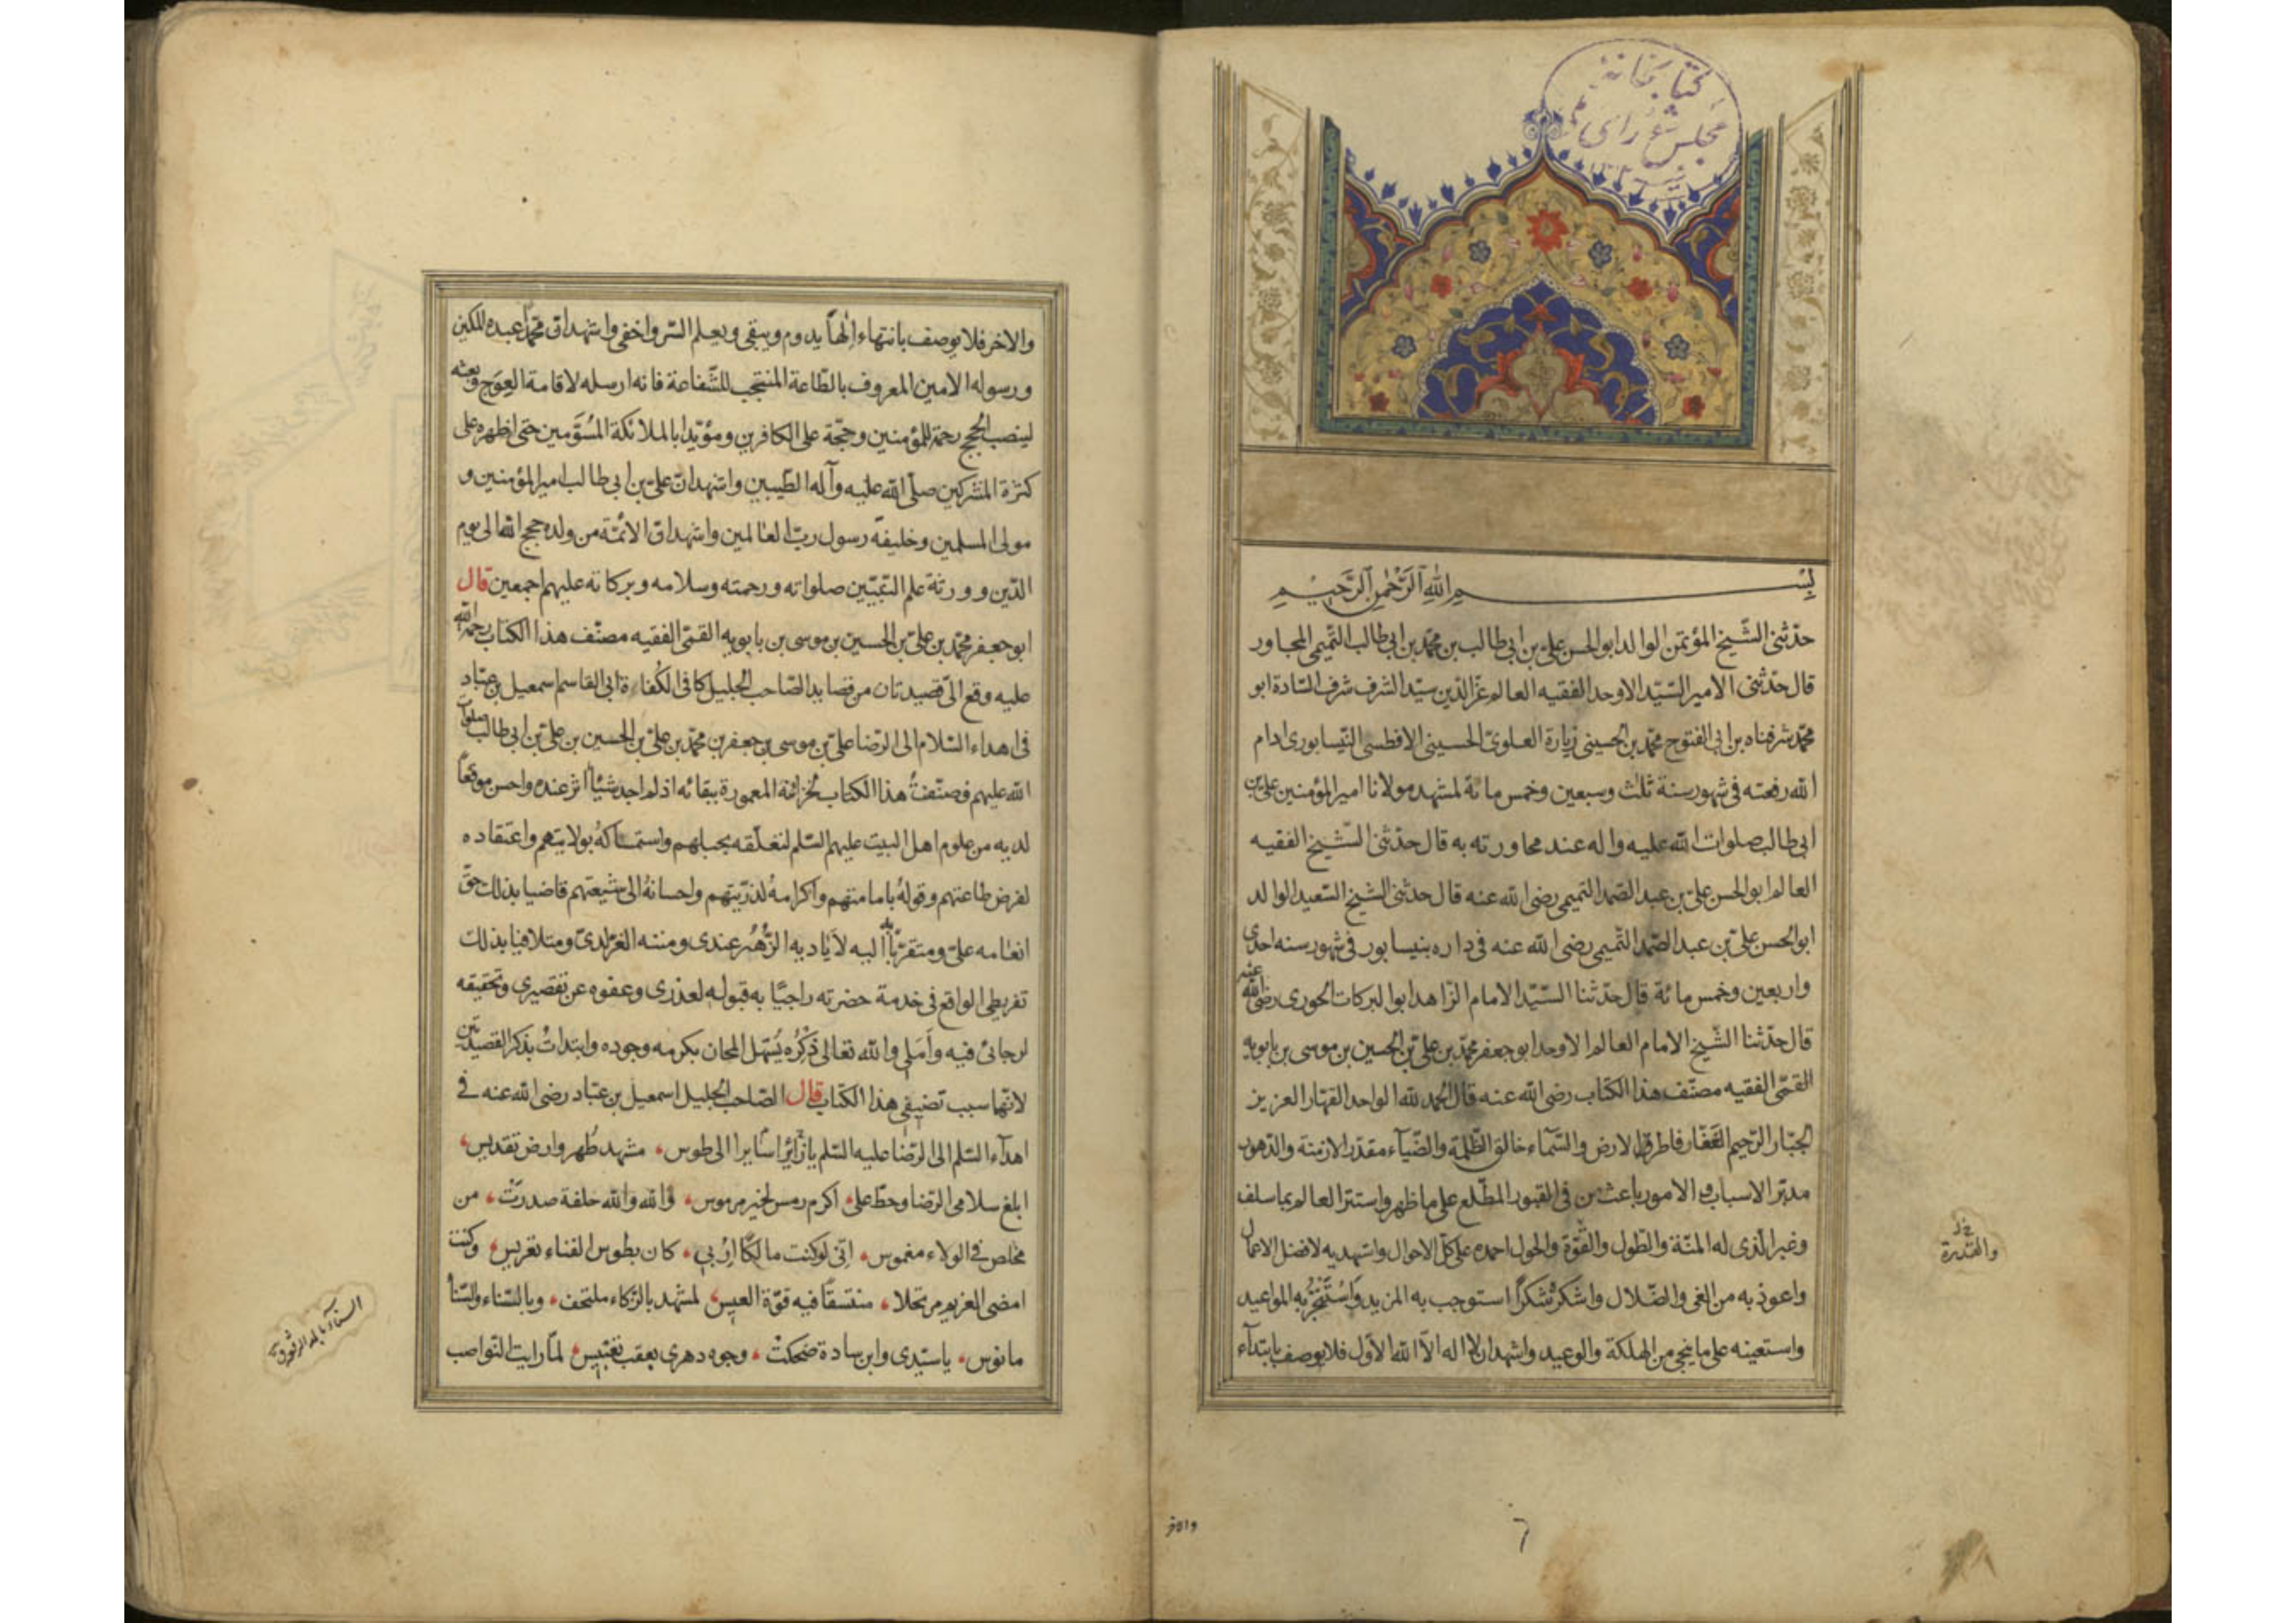 كتابخانه
مجلس شورای
بسم الله الرحمن الرحيم
حدّثنى الشّيخ المؤتمن الوالد ابو الحسن علىّ بن ابى طالب بن محمّد بن ابى طالب التّميمى المجاور
قال حدّثنى الامير السّيّد الاوحد الفقيه العالم عزّ الدّين سيّد الشرف شرف السّادة ابو
محمّد شرفشاه بن ابى الفتوح محمّد بن الحسين بن زيارة العلوىّ الحسينى الافطسى النّيسابورى ادام
الله رفعته فى شهور سنة ثلث وسبعين وخمس مائة لمشهد مولانا امير المؤمنين علىّ بن
ابى طالب صلوات الله عليه واله عند مجاورته به قال حدّثنى الشّيخ الفقيه
العالم ابو الحسن علىّ بن عبد الصّمد التميمى رضى الله عنه قال حدثنى الشيخ السّعيد الوالد
ابو الحسن علىّ بن عبد الصّمد التّميمى رضى الله عنه فى داره بنيسابور فى شهور سنه احدى
واربعين وخمس مائة قال حدّثنا السّيّد الامام الزّاهد ابو البركات الحورى رضى الله عنه
قال حدّثنا الشّيخ الامام العالم الاوحد ابو جعفر محمّد بن علىّ بن الحسين بن موسى بن بابويه
القمّى الفقيه مصنّف هذا الكتاب رضى الله عنه قال الحمد لله الواحد القهّار العزيز
الجبّار الرّحيم الغفّار فاطر الارض والسّمآء خالق الظّلمة والضّيآء مقدّر الازمنة والدّهور
مدبّر الاسباب والامور باعث من فى القبور المطّلع على ما ظهر واستتر العالم بما سلف
وغبر الّذى له المنّة والطّول والقوّة والحول احمده على كلّ الاحوال واستهديه لافضل الاعمال
واعوذ به من الغى والضّلال واشكره شكرًا استوجب به المزيد وَاسْتَنْجِزُ به المواعيد
واستعينه على ما ينجى من الهلكة والوعيد واشهد ان لا اله الاّ الله الاوّل فلا يوصف بابتدآء
والقدرة
والاخر
والاخر فلا يوصف بانتهاء إلهًا يدوم ويبقى ويعلم السّر واخفى واشهد انّ محمّدًا عبده المكين
ورسوله الامين المعروف بالطّاعة المنتجب للشّفاعة فانه ارسله لاقامة العِوَج وبعثه
لينصب الحجج رحمة للمؤمنين وحجّة على الكافرين ومؤيّدا بالملائكة المسَوّمين حتى اظهره على
كثرة المشركين صلّى الله عليه وآله الطّيبين واشهد انّ علىّ بن ابى طالب امير المؤمنين و
مولى المسلمين وخليفة رسول ربّ العالمين واشهد انّ الائمّة من ولده حجج الله الى يوم
الدّين وورثة علم النّبيّين صلواته ورحمته وسلامه وبركاته عليهم اجمعين قال
ابو جعفر محمّد بن علىّ بن الحسين بن موسى بن بابويه القمّىّ الفقيه مصنّف هذا الكتاب رحمة الله
عليه وقع الىّ قصيدتان من قصايد الصّاحب الجليل كافى الكُفاة ابى القاسم اسمعيل بن عبّاد
فى اهداء السّلام الى الرّضا علىّ بن موسى بن جعفر بن محمّد بن علىّ بن الحسين بن علىّ بن ابى طالب صلوات
الله عليهم فصنّفتُ هذا الكتاب لخزانته المعمورة ببقائه اذ لم اجد شيئًا اثر عنده واحسن موقعًا
لديه من علوم اهل البيت عليهم السّلم لتعلّقه بحبلهم واستمساكهُ بولايتهم واعتقاده
لفرض طاعتهم وقولهُ بامامتهم واكرامهُ لذرّيتهم واحسانهُ الى شيعتهم قاضيا بذلك حقّ
انعامه علىّ ومتقرّبًا به اليه لاَياديه الزُّهُر عندى ومننه الغرّ لدىّ ومتلافيا بذلك
تفريطى الواقع فى خدمة حضرته راجيًا به قبوله لعذرى وعفوه عن تقصيرى وتحقيقه
لرجائى فيه وأَمَلى والله تعالى ذِكْرُه يُسَهّل المجان بكرمه وجوده وابتدأتُ بذكر القصيدتين
لانّها سبب تصنيفى هذا الكتاب قال الصّاحب الجليل اسمعيل بن عبّاد رضى الله عنه فى
اهدآء السّلم الى الرّضا عليه السّلم يا زائرًا سايرا الى طوس، مشهد طُهر وارض تقديس،
ابلغ سلامى الرّضا وحطّ على، اكرم رمس لخير مرموس، والله والله حلفة صدرتْ، من
مخلص فى الولاء مغموس، انّى لو كنت مالكًا اِرْبى، كان بطوس الفناء تعريس، وكنت
امضى العزيم مرتحلا، منتسقًا فيه قوّة العيس، لمشهد بالزّكاء ملتحف، وبالسّناء والثّنا
مانوس، يا سيّدى وابن سادة ضحكتْ، وجوه دهرى بعقب تعبيس، لمّا رايت النّواصب